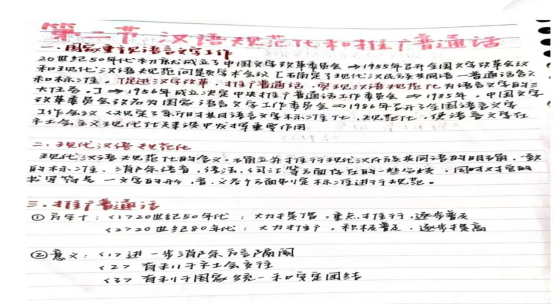 第二节 汉语规范化和推广普通话
一.国家重视语言文字工作
20世纪50年代初就成立了中国文字改革委员会→1955年召开全国文字改革会议
和现代汉语规范问题学术会议[确定了现代汉民族共同语—普通话含义
和标准。促进汉字改革、推广普通话、实现汉语规范化为语言文字的三
大任务。]→1956年成立中央推广普通话工作委员会→1985年,中国文字
改革委员会改名为国家语言文字工作委员会→1986年召开全国语言文字
工作会议<规定了新时期语言文字标准化,规范化,使语言文字在
社会主义现代化建设中发挥重要作用
二.现代汉语规范化
现代汉语规范化的含义:确立并推行现代汉民族共同语的明确、一致
的标准。消除语音,语法,词汇等方面存在的一些分歧,同时对它的
书写符号—文字的形,音,义等方面制定标准进行规范。
三.推广普通话
①方针:<1>20世纪50年代:大力提倡,重点推行,逐步普及
<2>20世纪80年代:大力推广,积极普及,逐步提高
②意义:<1>进一步消除方言隔阂
<2>有利于社会交往
<3>有利于国家统一和安定团结